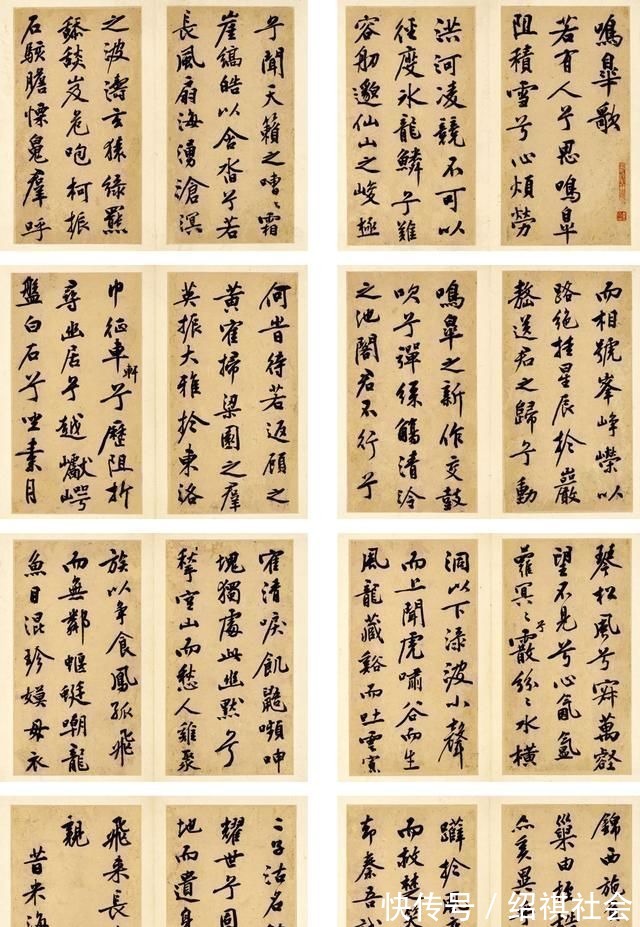 鳴臯歌
若有人兮思鳴臯
阻積雪兮心煩勞
洪河凌競不可以
徑度冰龍鱗兮難
容舠邈仙山之峻極
兮聞天籟之嘈〻霜
崖縞皓以合沓兮若
長風扇海湧滄溟
之波濤玄猿綠羆
舔舕岌危咆柯振
石駭膽慄魄羣呼
而相號峯崢嶸以
路絕挂星辰於巖
嶅送君之歸兮動
鳴臯之新作交鼓
吹兮彈絲觴清泠
之池閣君不行兮
何昔待若返顧之
黃寉掃梁園之羣
英振大雅於東洛
巾征車軒兮歷阻折
尋幽居兮越巘崿
盤白石兮坐素月
琴松風兮寂萬壑
望不見兮心氤氳
蘿冥〻兮霰紛〻水橫
洞以下淥波小聲
而上聞虎嘯谷而生
風龍藏谿而吐雲冥
寉清唳飢鼯嚬呻
塊獨處此幽默兮
空山而愁人雞聚
族以爭食鳳孤飛
而無鄰蝘蜓嘲龍
魚目混珍嫫母衣
錦西施
巢由
亦奚異
於
而救楚笑
却秦吾
二子沽名
耀世兮固
地而遺身
飛来長
親
昔米海
快传号／绍祺社会